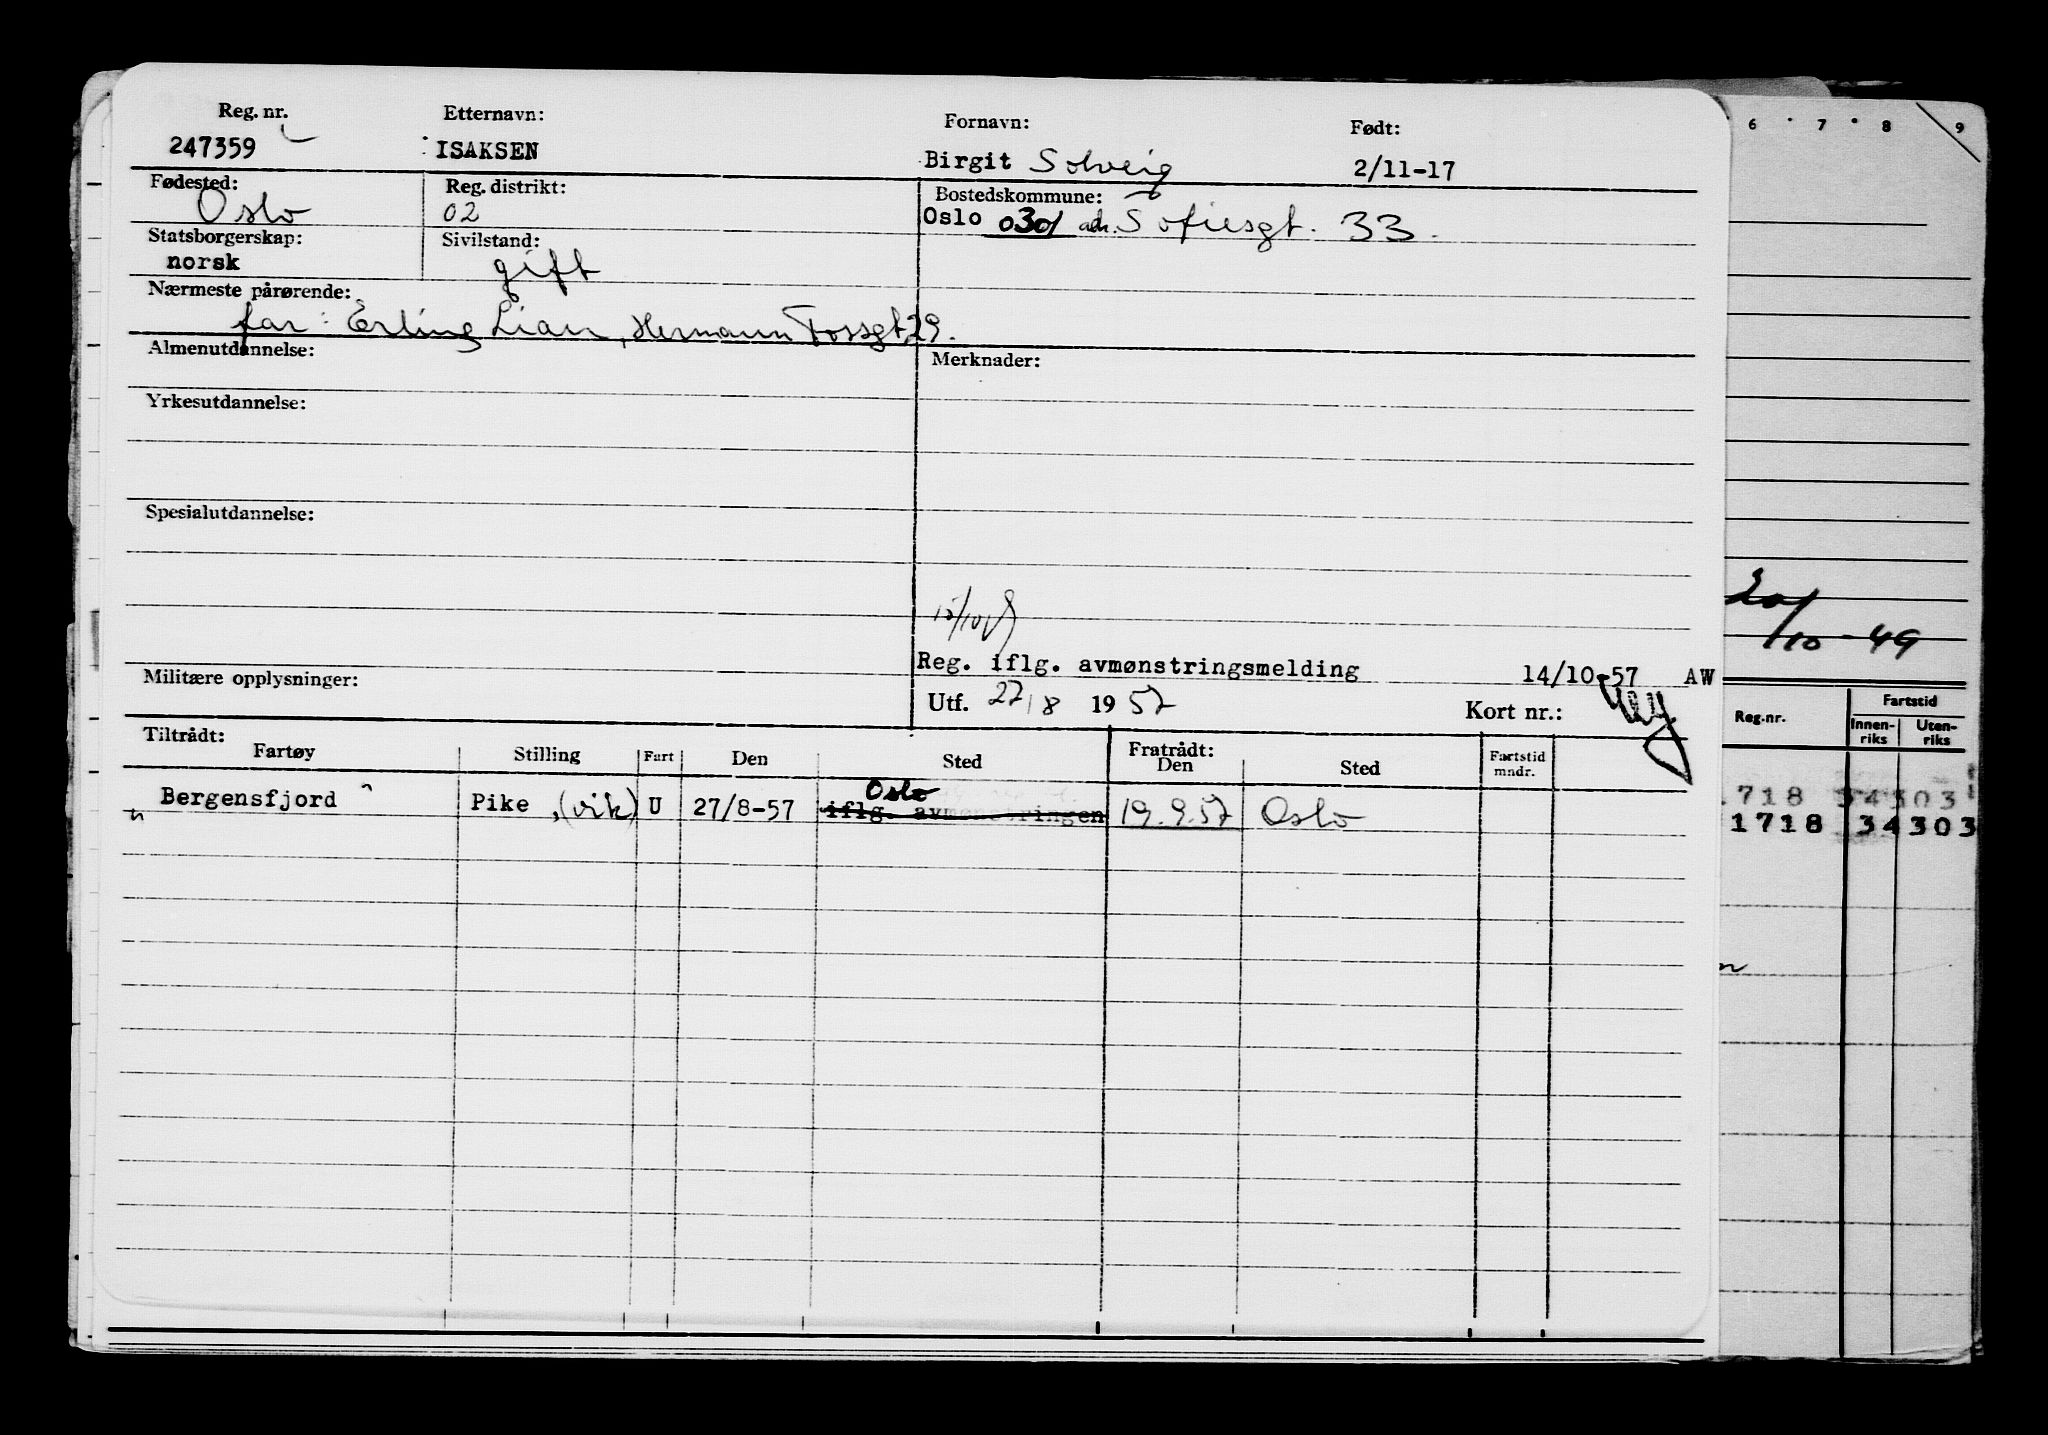 Reg. nr. Etternavn: Fornavn: Født:
247359 ISAKSEN Birgit Solveig 2/11-17
Fødested: Reg. distrikt: Bostedskommune:
Oslo 02 Oslo 0301 adr. Sofiesgt. 33.
Statsborgerskap: Sivilstand:
norsk gift
Nærmeste pårørende:
far: Erling Lian, Hermann Fossgt. 29.
Almenutdannelse: Merknader:
Yrkesutdannelse:
Spesialutdannelse:
Reg. iflg. avmønstringsmelding 14/10-57 AW
Militære opplysninger: Utf. 27/8 1957 Kort nr.:
Tiltrådt: Fratrådt:
Fartøy Stilling Fart Den Sted Den Sted Fartstid mndr.
Oslo
Bergensfjord Pike, (vik) U 27/8-57 iflg. avmønstringen 19.9.57 Oslo
"
6 7 8 9
20/10-49
Reg.nr. Fartstid
Innen-riks Uten-riks
.718 34303
1718 34303